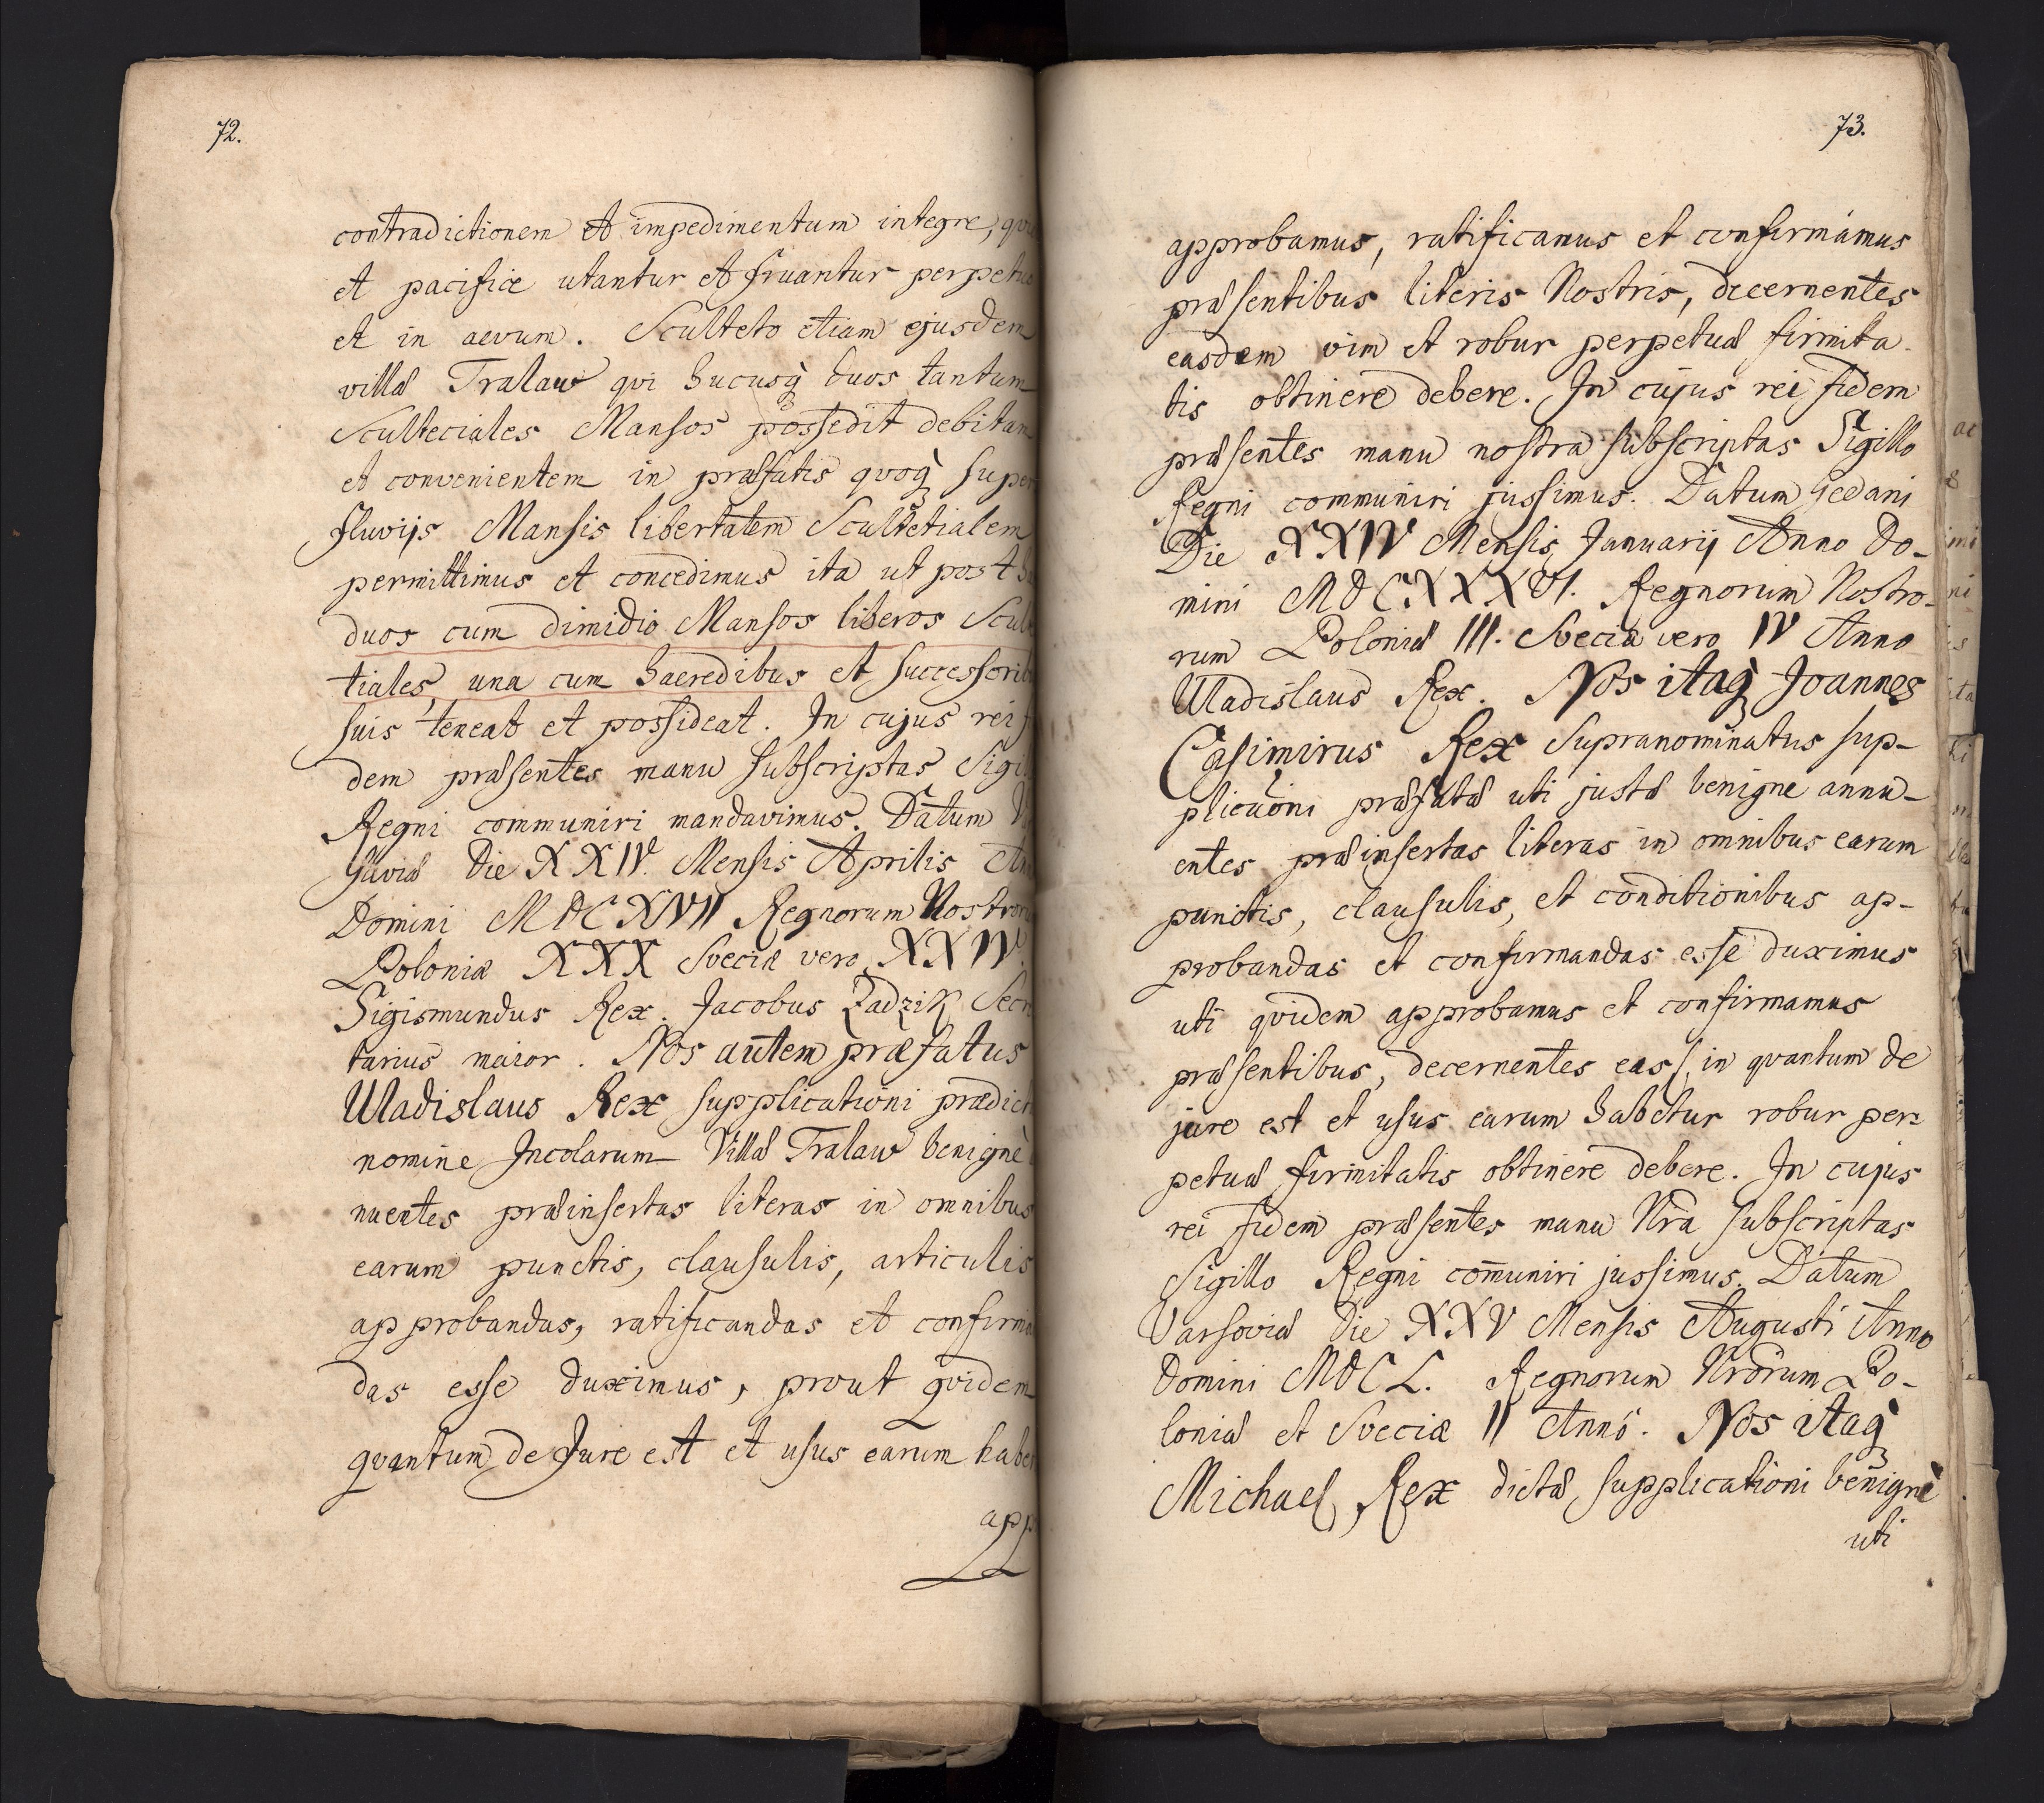 72.
contradictionem et impedimentum integre,
et pacifice utantur et fruantur perpetuo
et in aevum. Sculteto etiam ejusdem
villæ Tralaw qvi hucusq̀ duos tantum
Sculteciales Mansos possedit debitam
et convenientem in præfatis qvoq̀ super
fluvijs Mansis libertatem Scultetialem
permittimus et concedimus ita ut post
duos cum dimidio Mansos liberos Scul
tiales, una cum haeredibus et successorib
suis teneat et possideat. In cujus rei
dem præsentes manu subscriptas Sigil
Regni communiri mandavimus. Datum
savia Die XXIV. Mensis Aprilis An
Domini MDCXVII Regnorum Nostroru
Poloniæ XXX Sveciæ vero XXIV.
Sigismundus Rex. Jacobus Zadzik Secre
tarius maior. Nos autem præfatus
Uladislaus Rex supplicationi prædict
nomine Incolarum Villæ Tralaw benignè
nuentes præinsertas literas in omnibus
earum punctis, clausulis, articulis
approbandas, ratificandas et confirma
das esse duximus, prout qvidem
qvantum de Jure est et usus earum habet
app
73.
approbamus, ratificamus et confirmamus
præsentibus literis Nostris, decernentes
easdem vim et robur perpetuæ firmita-
tis obtinere debere. In cujus rei fidem
præsentes manu nostra subscriptas Sigillo
Regni communiri jussimus. Datum Gedani
Die XXIV Mensis Januarij Anno Do-
mini MDCXXXVI. Regnorum Nostro-
rum Poloniæ III. Sveciæ vero IV Anno
Uladislaus Rex. Nos itaq̀ Joannes
Casimirus Rex Supranominatus sup-
plicaoni præfatæ uti justæ benigne annu-
entes præinsertas literas in omnibus earum
punctis, clausulis, et conditionibus ap-
probandas et confirmandas esse duximus
uti qvidem approbamus et confirmamus
præsentibus, decernentes eas, in qvantum de
jure est et usus earum habetur robur per-
petuæ firmitatis obtinere debere. In cujus
rei fidem præsentes manu Nrã subscriptas
Sigillo Regni com̄uniri jussimus. Datum
Varsoviæ Die XXV Mensis Augusti Anno
Domini MDCL. Regnorum Nrõrum Po-
loniæ et Sveciæ II Anno. Nos itaq̀
Michael, Rex dictæ supplicationi benignè
uti